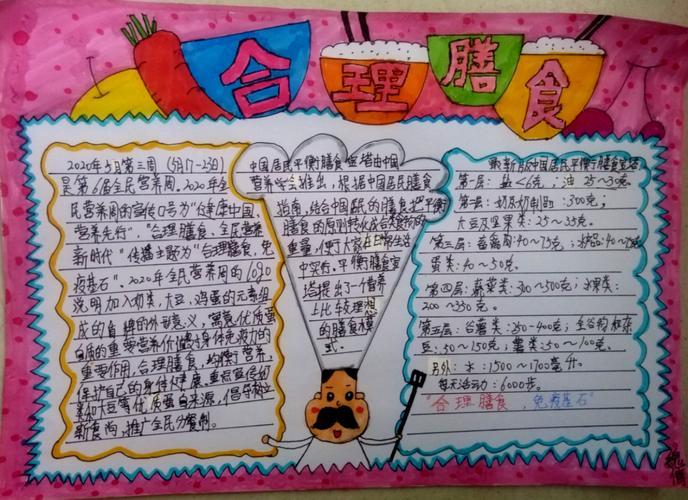 合理膳食
2020年5月第三周（5月17-23日）
是第6届全民营养周，2020年全
民营养周的宣传口号为"健康中国，
营养先行"，"合理膳食、全民营养
新时代"传播主题为"合理膳食，免
疫基石"。2020年全民营养周的LOGO
说明加入奶类，大豆，鸡蛋的元素组
成的盲牌的外形意义，寓意优质蛋
白质的重要营养价值对身体免疫力的
重要作用，合理膳食，均衡营养，
保护自己的身体健康
新食尚，推广全民分餐制。
中国居民平衡膳食宝塔由中国
营养学会推出，根据中国居民膳食
指南，结合中国居民的膳食把平衡
膳食的原则转化成各类食物的
重量，便于大家在日常生活
中实行，平衡膳食宝
塔提出了一个营养
上比较理想
的膳食模
式。
最新版中国居民平衡膳食宝塔
第一层：盐<6克；油 25~30克。
第二层：奶及奶制品：300克；
大豆及坚果类：25~35克。
第三层：畜禽肉40~75克；水产品40~75
蛋类：40~50克。
第四层：蔬菜类：300~500克；水果类：
200~350克。
第五层：谷薯类：250~400克；全谷物和杂
豆：50~150克；薯类：50~100克。
另外：水：1500~1700毫升。
每天活动：6000步。
"合理膳食，免疫基石"